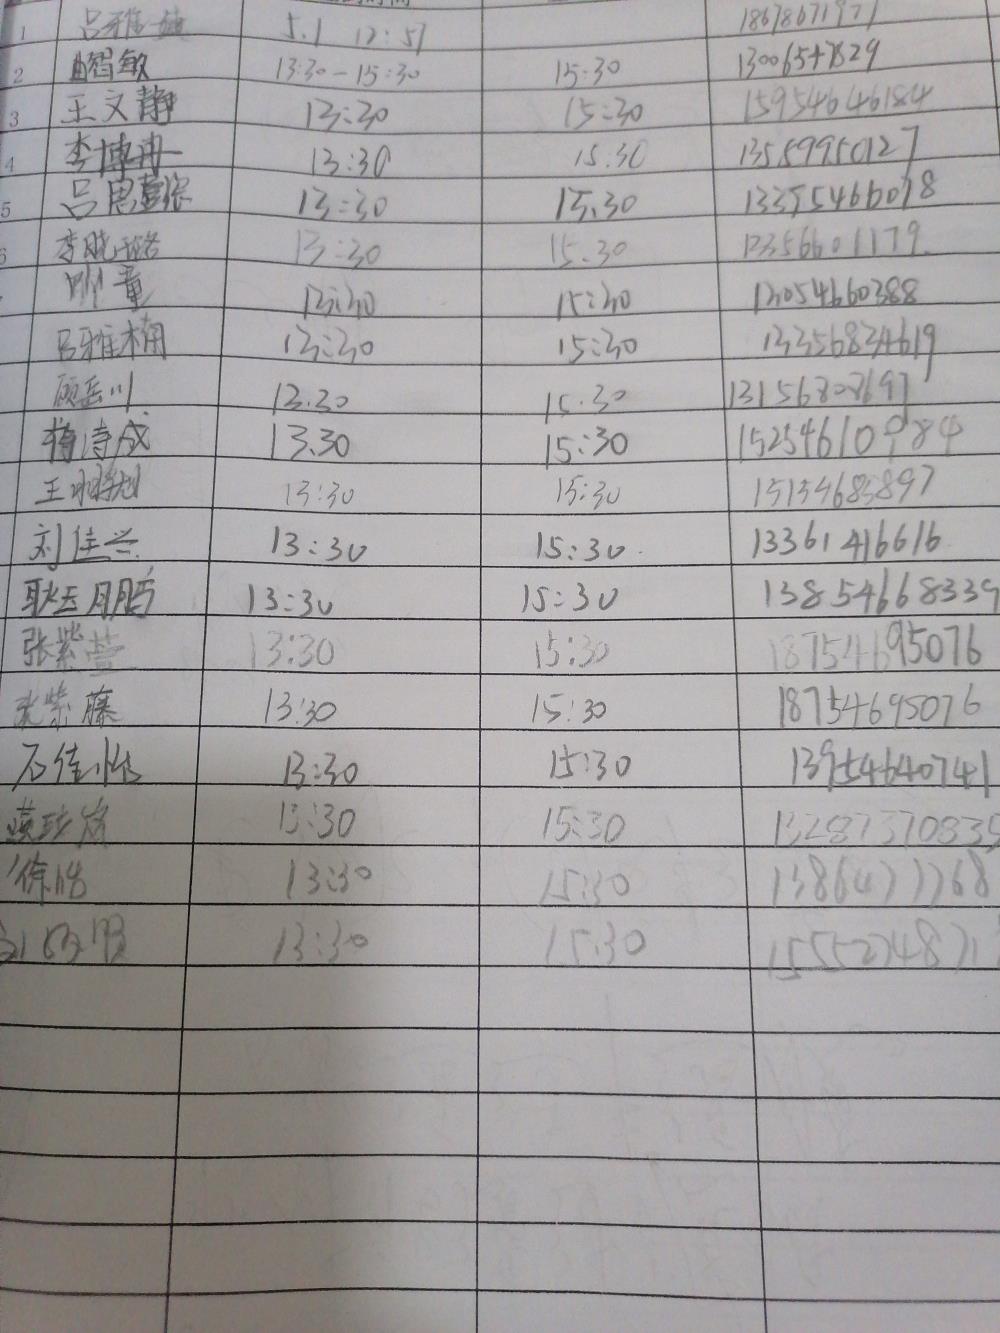 1 吕雅婕 5.1 12:57 18678671971
2 曲智敏 13:30-15:30 15:30 13006547829
3 王文静 13:30 15:30 15954646184
4 李博冉 13:30 15:30 13589950127
5 吕思蓉 13:30 15.30 13395466018
6 李晓璐 13:30 15:30 12356601179
童 13:30 15:30 13054660388
吕雅楠 13:30 15:30 13356834619
顾岳川 13.30 15.30 13156808697
蒋诗成 13.30 15:30 15254610984
王 13:30 15:30 15154685897
刘佳兴 13:30 15:30. 13361416616
耿天鹏 13:30 15:30 13854668339
张紫萱 13:30 15:30 18754695076
张紫藤 13:30 15:30 18754695076
石佳怡 13:30 15:30 13954640741
13:30 15:30 1328737083
徐 13:30 15:30
13:30 15:30